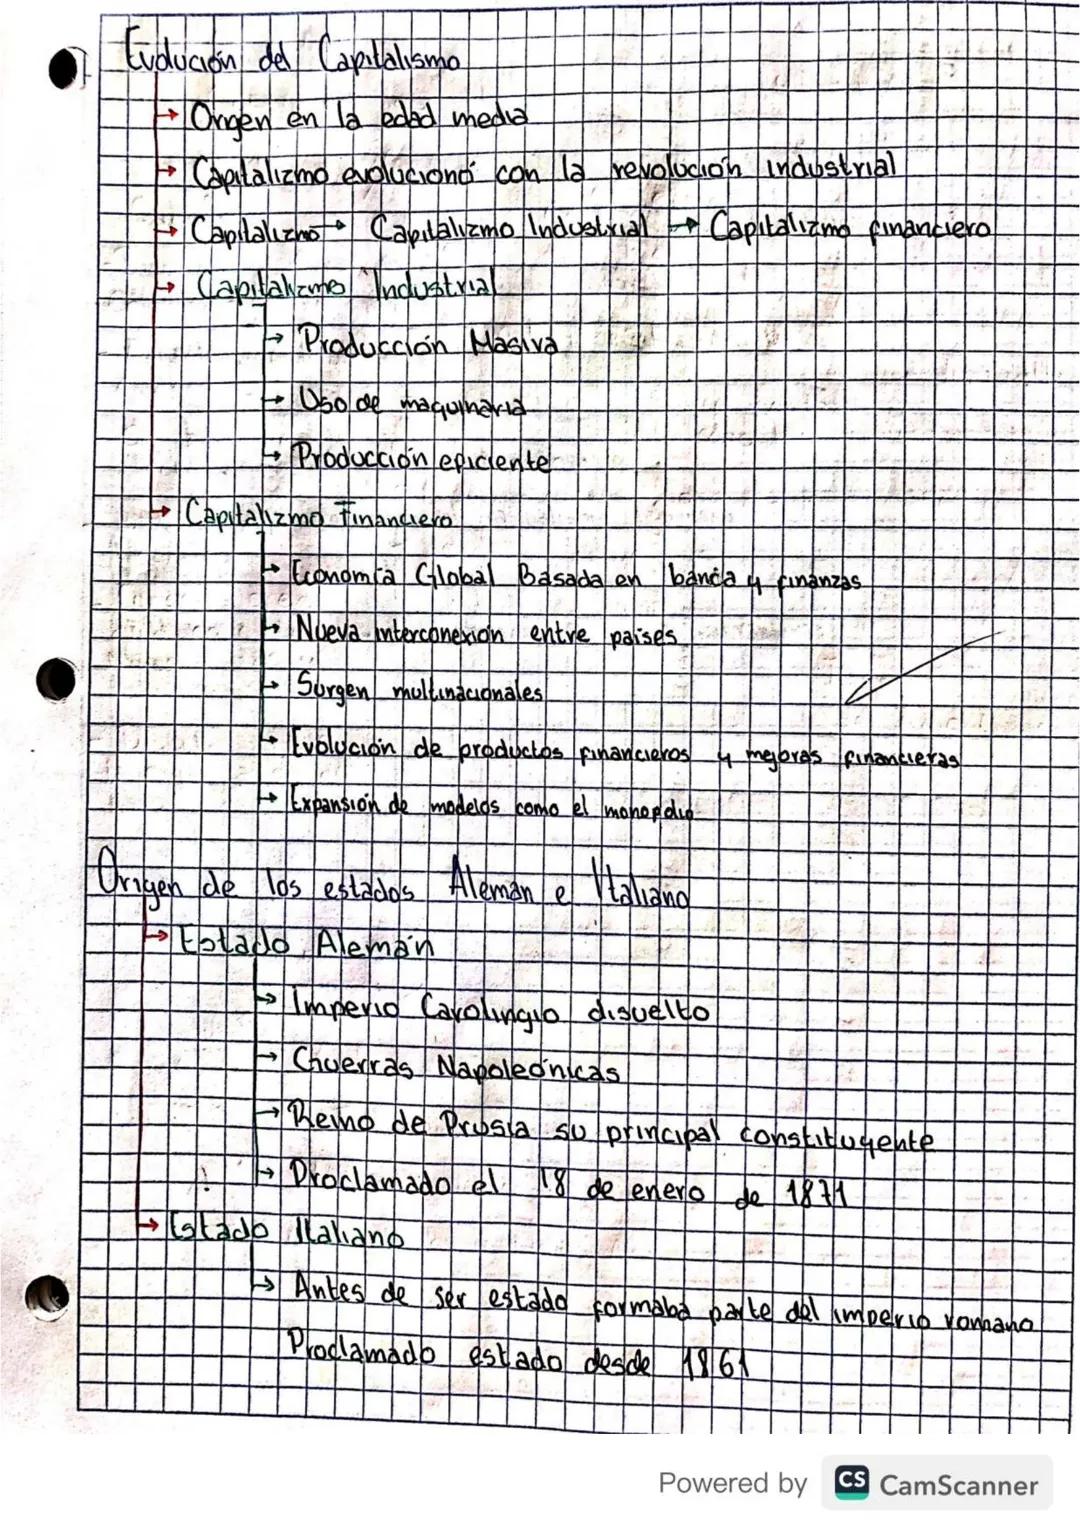 Evolución del Capitalismo
→ Origen en la edad media
→ Capitalizmo evolucionó con la revolución industrial
→ Capitalizmo → Capitalizmo Industrial → Capitalizmo financiero
→ Capitalizmo Industrial
→ Producción Masiva
→ Uso de maquinaria
→ Producción eficiente
→ Capitalizmo Financiero
→ Economía Global Basada en banca y finanzas
→ Nueva interconexión entre paises
→ Surgen multinacionales
→ Evolución de productos financieros y mejoras financieras
→ Expansión de modelos como el monopolio
Origen de los estados Aleman e Italiano
→ Estado Alemán
→ Imperio Carolingio disuelto
→ Guerras Napoleónicas
→ Reino de Prusia su principal constituyente
→ Proclamado el 18 de enero de 1871
→ Estado Italiano
→ Antes de ser estado formaba parte del imperio romano
Proclamado estado desde 1861
Powered by CS CamScanner